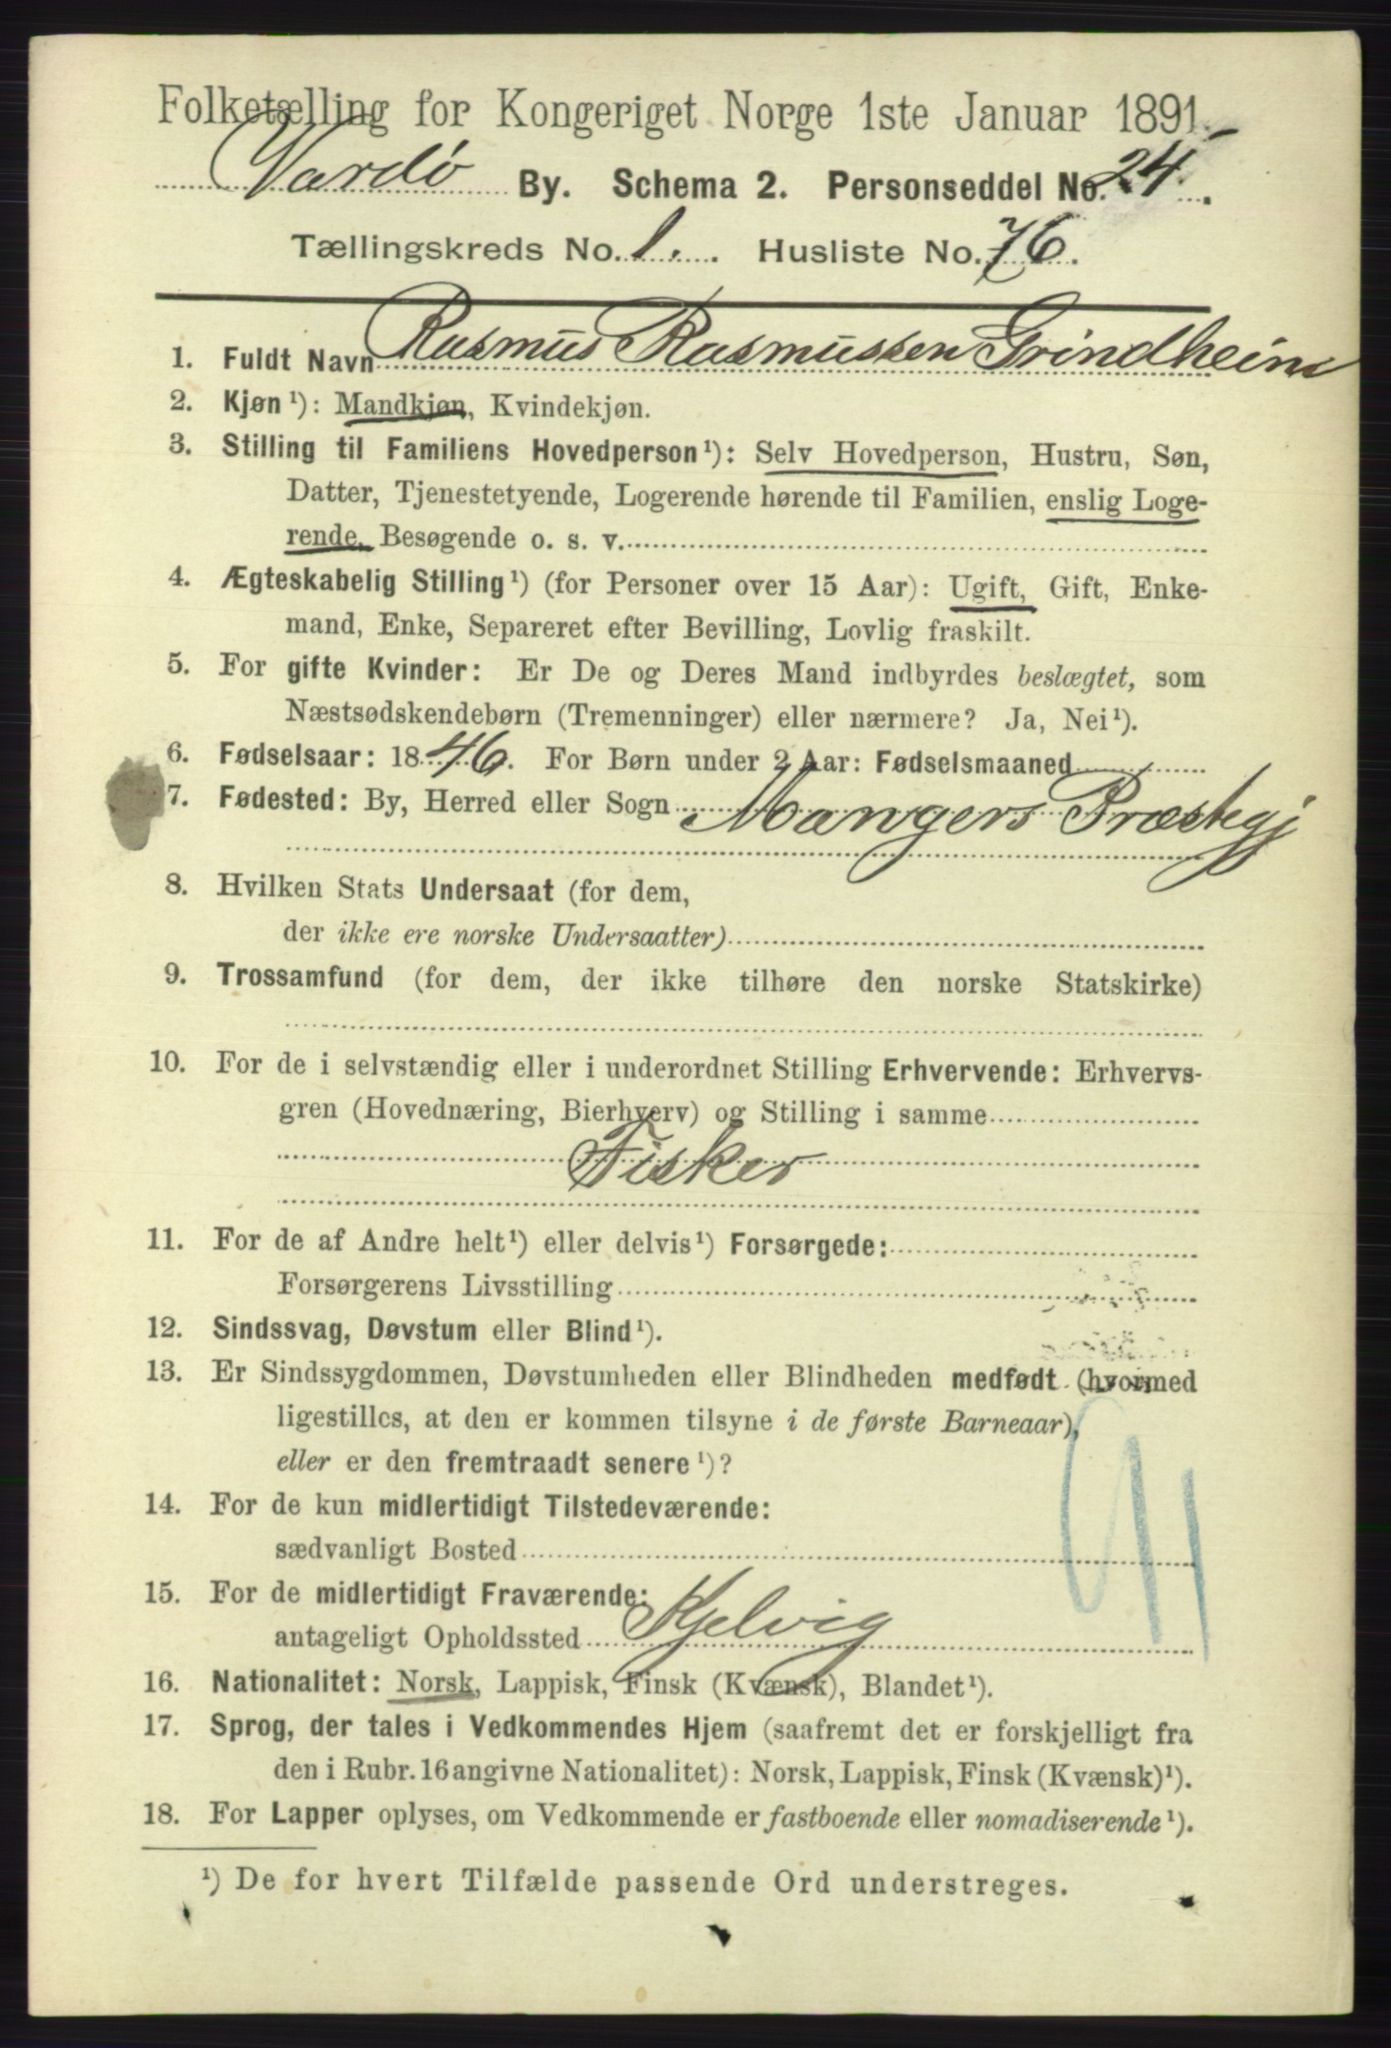 Folketælling for Kongeriget Norge 1ste Januar 1891.
Vardö By. Schema 2. Personseddel No. 24.
Tællingskreds No. 1. Husliste No. 76.
1. Fuldt Navn Rasmus Rasmussen Grindheim
2. Kjøn¹): Mandkjøn, Kvindekjøn.
3. Stilling til Familiens Hovedperson¹): Selv Hovedperson, Hustru, Søn,
Datter, Tjenestetyende, Logerende hørende til Familien, enslig Loge-
rende, Besøgende o. s. v.
4. Ægteskabelig Stilling¹) (for Personer over 15 Aar): Ugift, Gift, Enke-
mand, Enke, Separeret efter Bevilling, Lovlig fraskilt.
5. For gifte Kvinder: Er De og Deres Mand indbyrdes beslægtet, som
Næstsødskendebørn (Tremenninger) eller nærmere? Ja, Nei¹).
6. Fødselsaar: 1846. For Børn under 2 Aar: Fødselsmaaned
7. Fødested: By, Herred eller Sogn Mangers Præstegj
8. Hvilken Stats Undersaat (for dem,
der ikke ere norske Undersaatter)
9. Trossamfund (for dem, der ikke tilhøre den norske Statskirke)
10. For de i selvstændig eller i underordnet Stilling Erhvervende: Erhvervs-
gren (Hovednæring, Bierhverv) og Stilling i samme
Fisker
11. For de af Andre helt¹) eller delvis¹) Forsørgede:
Forsørgerens Livsstilling
12. Sindssvag, Døvstum eller Blind¹).
13. Er Sindssygdommen, Døvstumheden eller Blindheden medfødt (hvormed
ligestilles, at den er kommen tilsyne i de første Barneaar),
eller er den fremtraadt senere¹)?
14. For de kun midlertidigt Tilstedeværende:
sædvanligt Bosted
15. For de midlertidigt Fraværende:
antageligt Opholdssted Kjelvig
16. Nationalitet: Norsk, Lappisk, Finsk (Kvænsk), Blandet¹).
17. Sprog, der tales i Vedkommendes Hjem (saafremt det er forskjelligt fra
den i Rubr. 16 angivne Nationalitet): Norsk, Lappisk, Finsk (Kvænsk)¹).
18. For Lapper oplyses, om Vedkommende er fastboende eller nomadiserende¹).
¹) De for hvert Tilfælde passende Ord understreges.
91